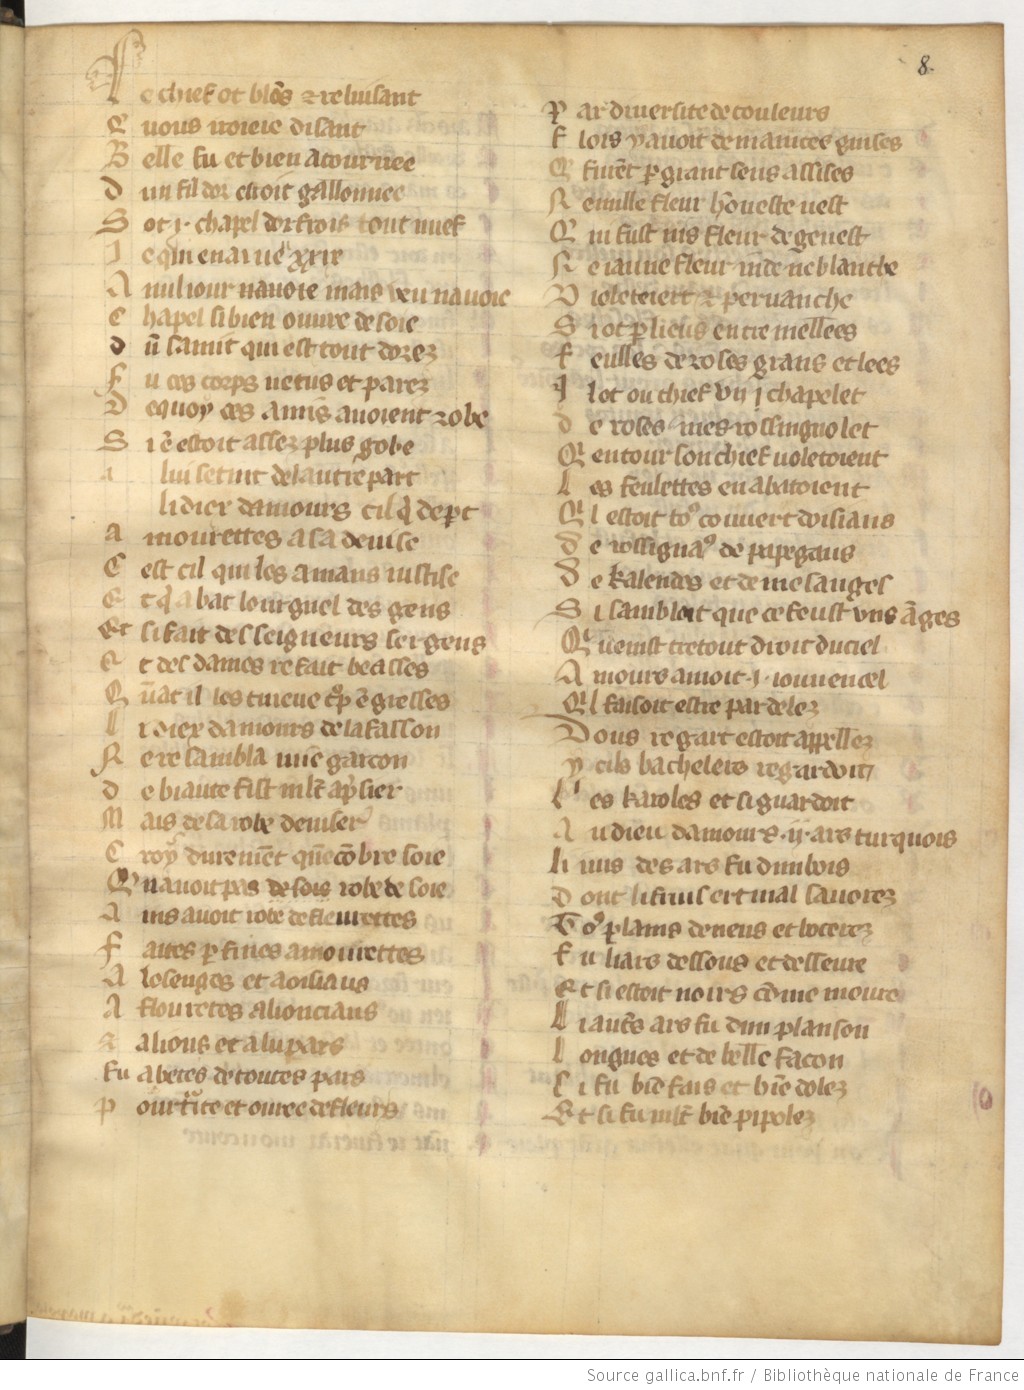 8
Le chief ot blõs et reluisant
E vous iroieie disant
Belle fu et bien atournee
Dun fil dor estoit gallonnee
Sot .j. chapel dorfrois tout nuef
Je qui en ai ue xxix
A nul jour navoie mais veu navoie
Chapel si bien ouvre de soie
Dũ samit qui est tout dorez
Fu ces corps vetus et parez
De quoy ces amis avoient robe
Si ẽ estoit assez plus gobe
A lui se tint de lautre part
li dier damours cil q̃ dept
amourettes a sa devise
Cest cil qui les amans iustise
Et q̃ abat lourguel des gens
Et si fait des seigneurs sergens
Et des dames refait beasses
Quãt il les trueve tp̃ ẽgresses
Li diex damours de la fasson
Ne resambla mie garcon
de biaute fist mlt apsier
Mais de sa robe deviser
Croy durement quencõbre soie
Qu navoit pas de sois robe de soie
Ains avoit robe de fleurettes
Faites p fines amourettes
A losenges et a oisiaus
A flouretes a lionciaus
a lions et a lupars
Fu a betes de toutes pars
Pourtite et ouvree de fleurs
Par diversite de couleurs
Flois y avoit de maintes guises
Q fuient p grant sens assises
Ne nulle fleur honeste nest
Qui fust nis fleur de genest
Ne jaune fleur inde ne blanche
Violete iert et pervanche
Si ot p lieus entremellees
Feulles de roses grans et lees
Il ot ou chief un j chapelet
de roses mes rossingnolet
Q entour son chief voletoient
Les feulettes en abatoient
Ql estoit to⁹ couvert doisiaus
De rossignaˢ de papegaus
De kalendes et de mesanges
Si sambloit que ce feust uns ãges
Q venist tretout droit du ciel
Amours avoit .j. iouvencel
Ql faisoit estre par delez
Dous regart estoit appellez
y cils bachelers regardoit
Les karoles et si guardoit
Au dieu damours .ij. ars turquois
Li uns des ars fu dun bois
Dont li fruis ert mal savorez
To⁹ plains de neus et bocerez
Fu li ars dessous et desseure
Et si estoit noirs cõme meure
Li autẽs ars fu dun planson
Longues et de belle facon
Si fu biẽ fais et biẽ dolez
Et si fu mlt biẽ pipolez
Source gallica.bnf.fr / Bibliothèque nationale de France